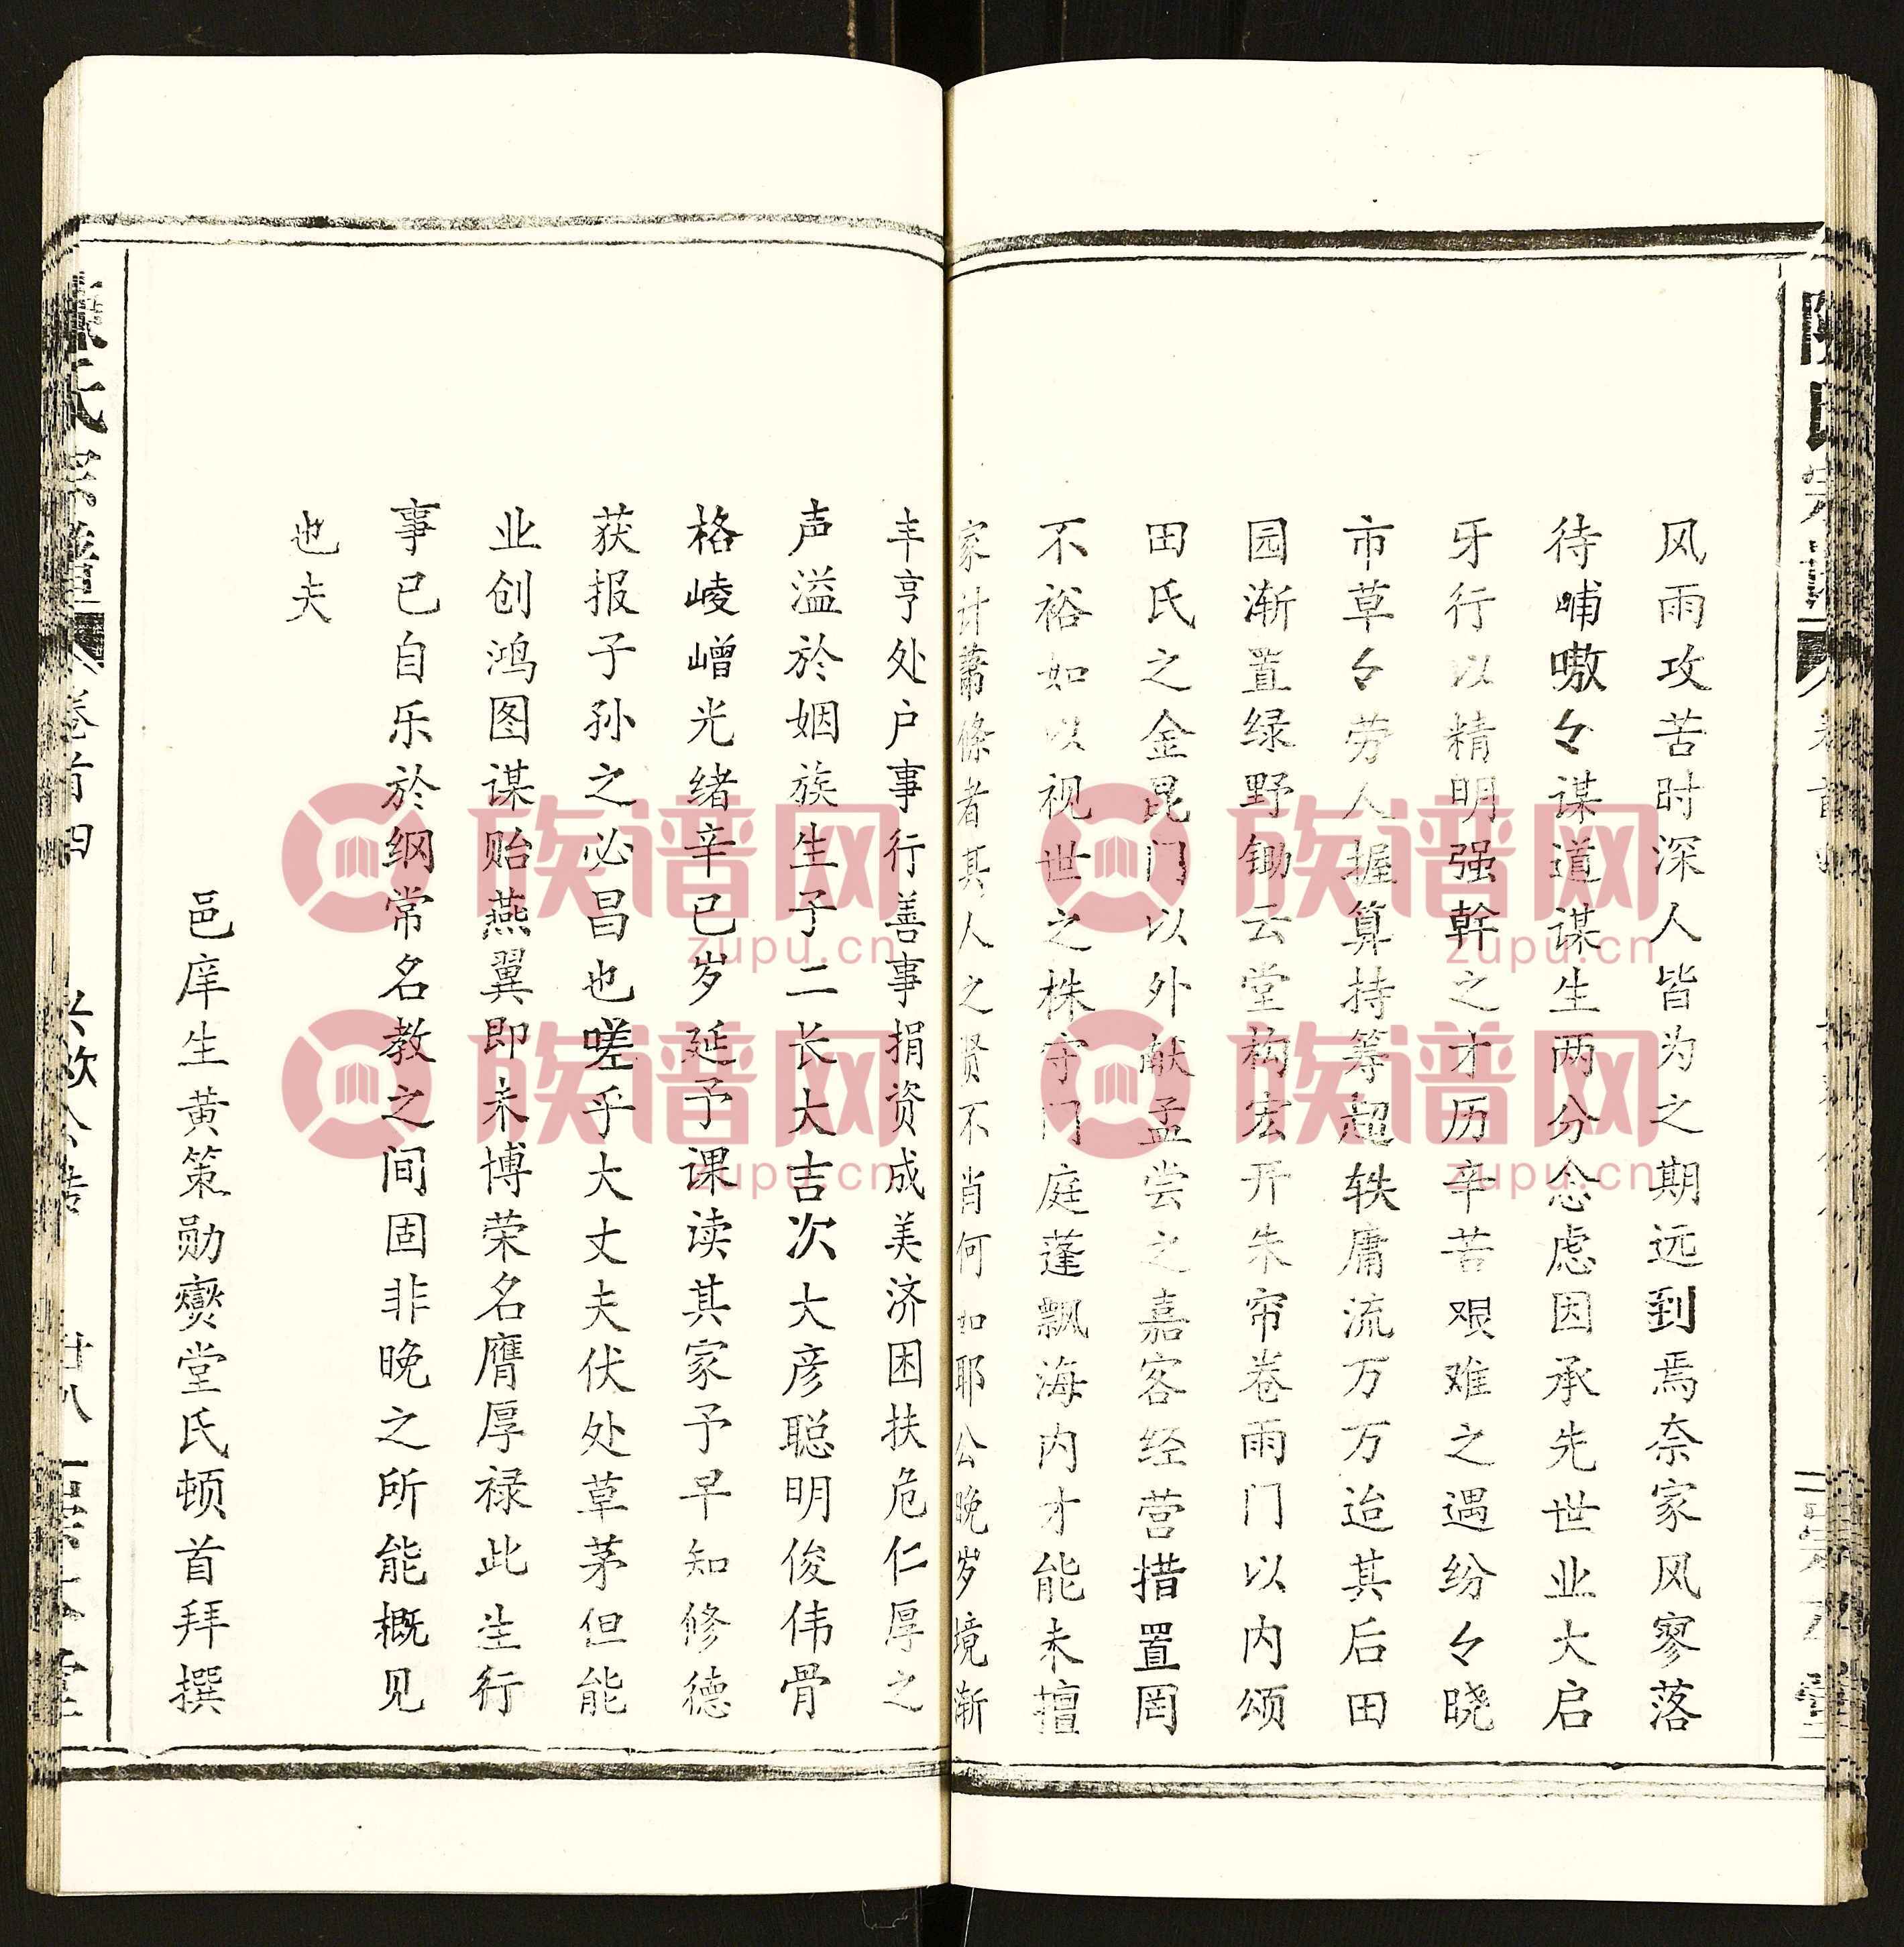 风雨攻苦时深人皆为之期远到焉奈家风寥落
待哺嗷々谋道谋生两分念虑因承先世业大启
牙行以精明强幹之才历辛苦艰难之遇纷々晓
市草々劳人握算持筹超轶庸流万万迨其后田
园渐置绿野锄云堂构宏开朱帘卷雨门以内颂
田氏之金昆门以外献孟尝之嘉客经营措置罔
不裕如以视世之株守门庭蓬飘海内才能未擅
家计萧條者其人之贤不肖何如耶公晚岁境渐
丰亨处户事行善事捐资成美济困扶危仁厚之
声溢於姻族生子二长大吉次大彦聪明俊伟骨
格崚嶒光绪辛巳岁延予课读其家予早知修德
获报子孙之必昌也嗟乎大丈夫伏处草茅但能
业创鸿图谋贻燕翼即未博荣名膺厚禄此生行
事已自乐於纲常名教之间固非晚之所能概见
也夫
邑庠生黄策勋爕堂氏顿首拜撰
卷首四
廿八
族谱网
zupu.cn
族谱网
zupu.cn
族谱网
zupu.cn
族谱网
zupu.cn